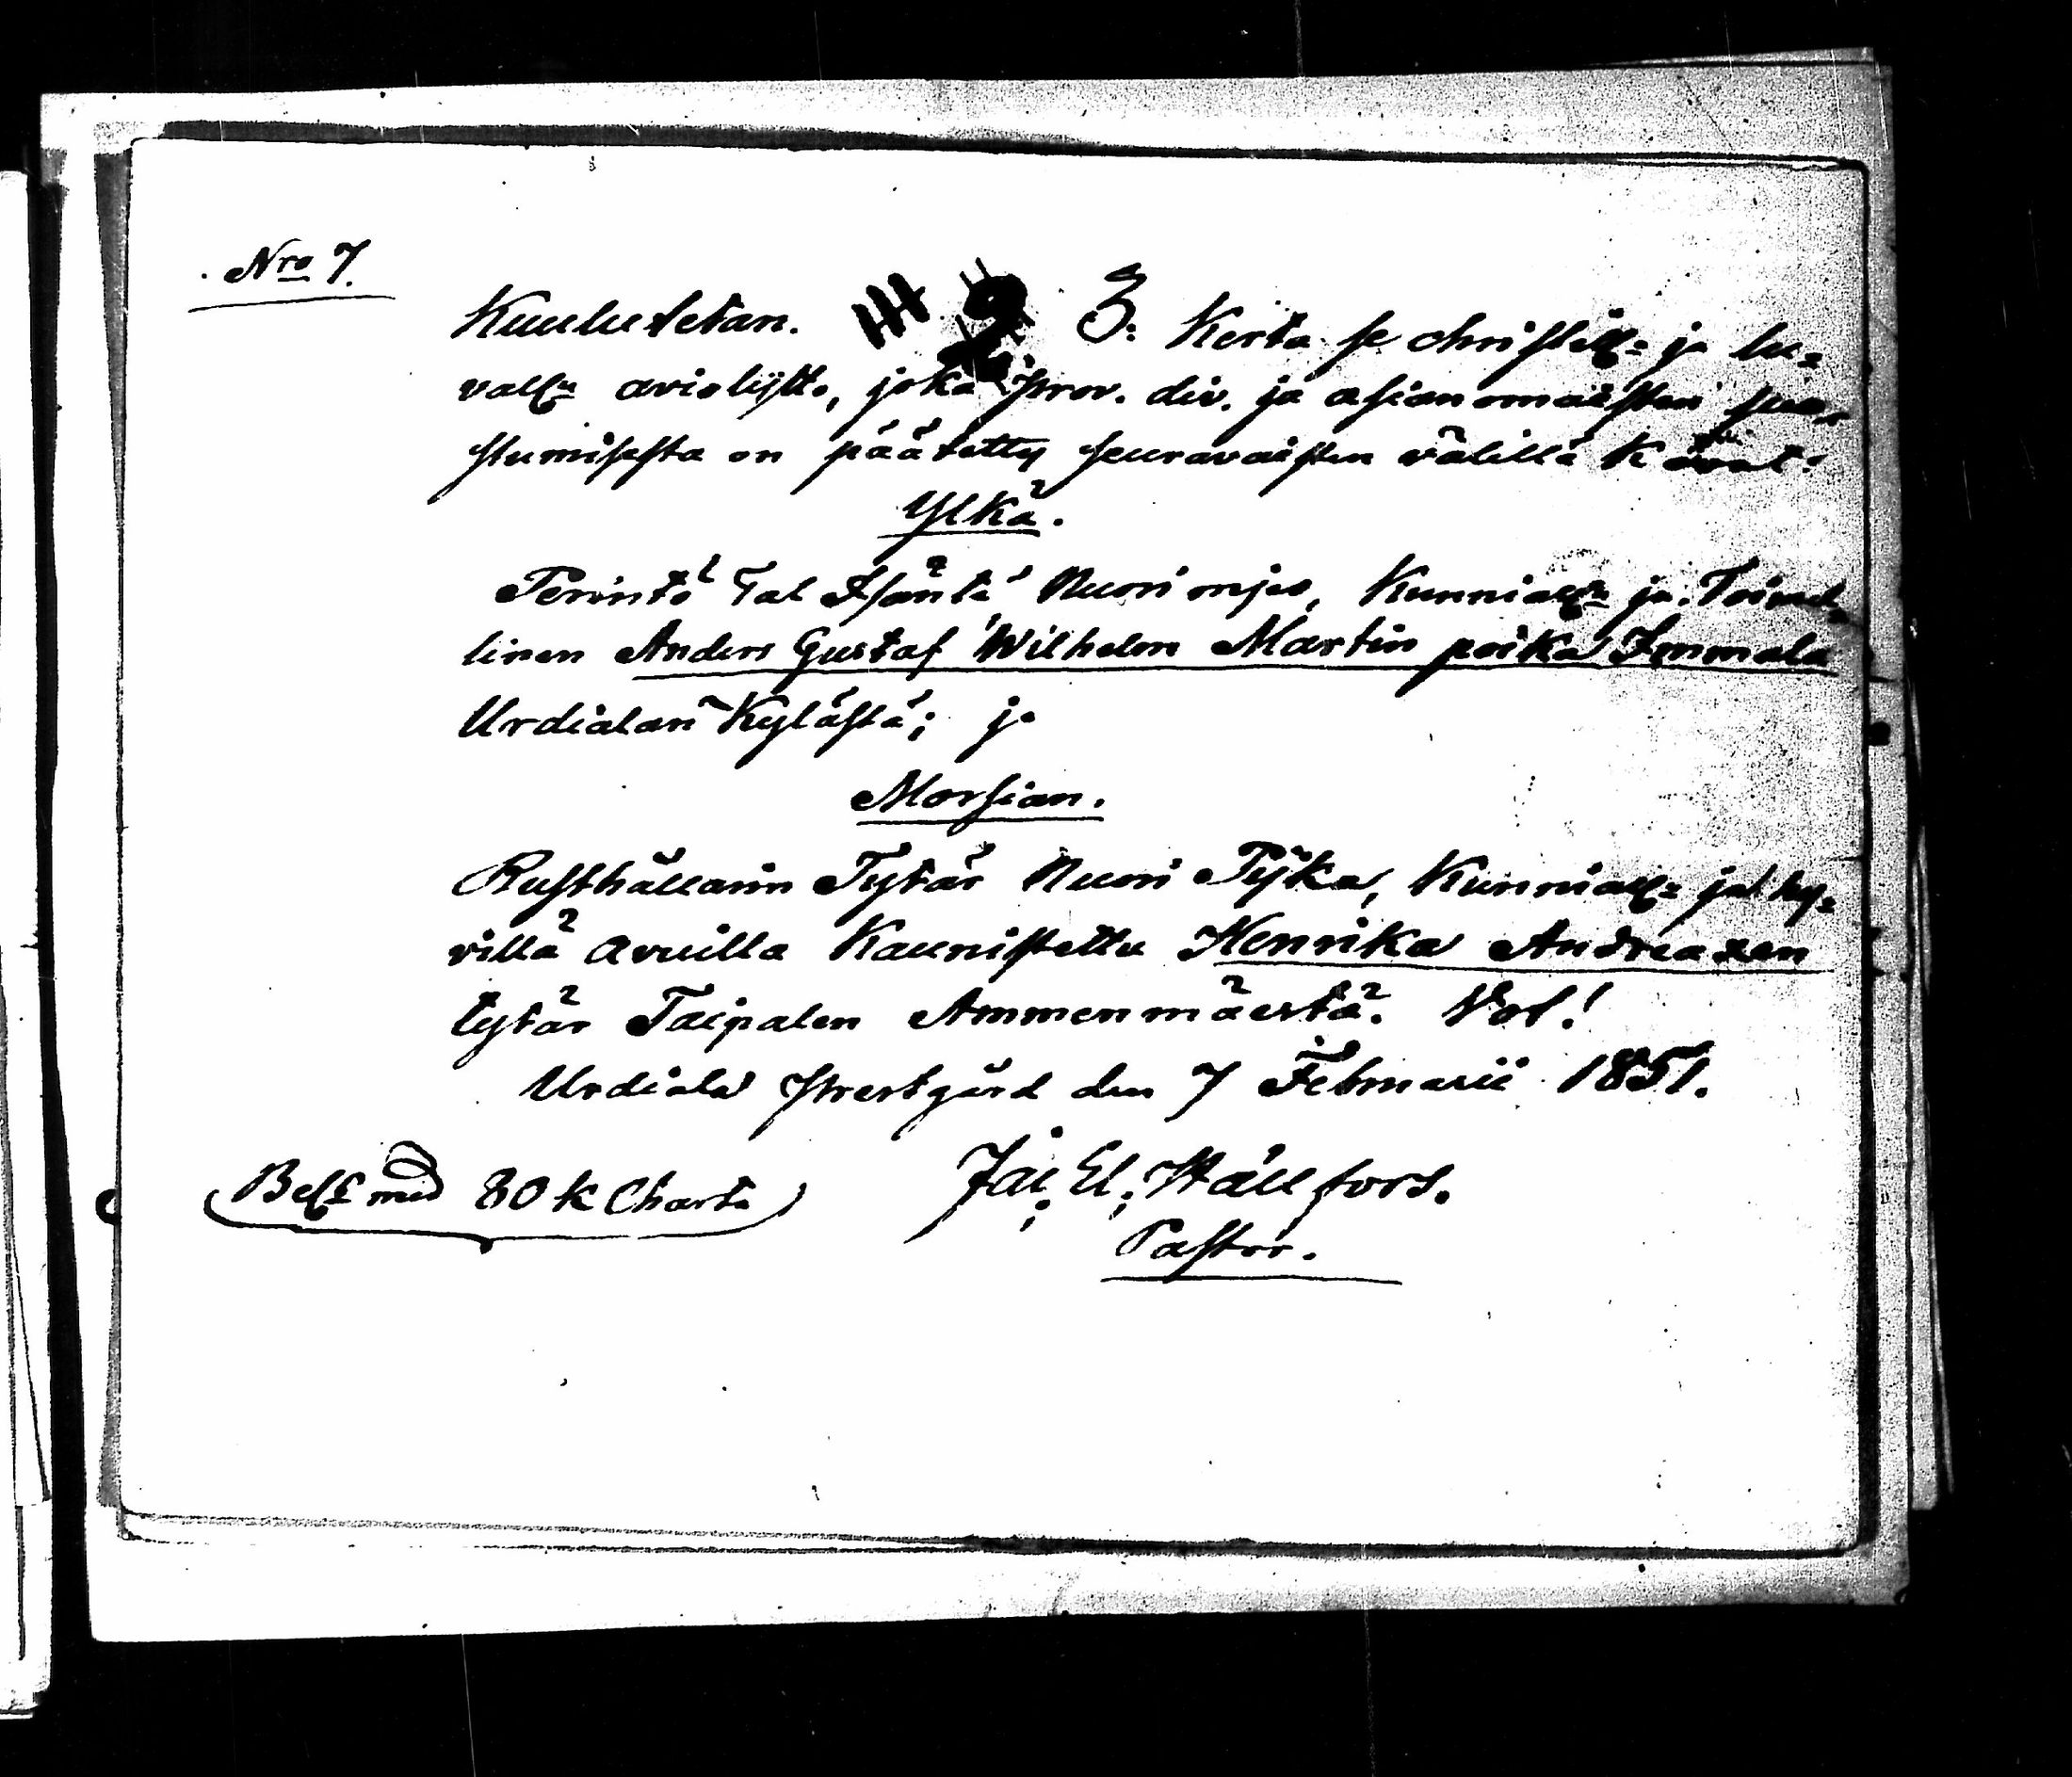 Nro 7.
Kuulutetan. 3: Kerta se christill: ja lu=
vall: aviolijtto, joka prov. div. ja asianomaisten suo=
stumisesta on päätetty seuravaisten välillä
Ylkä.
Perintö Tal Isäntä Nuori mjes, Kunniall: ja Toimel=
linen Anders Gustaf Wilhelm Martin poika Immala
Urdialan Kylästä; ja
Morsian.
Rusthållarin Tytär Nuori Pijka, Kunniall: ja hy=
villä avuilla Kaunistettu Henrika Andreaxen
tytär Taipalen Ammenmäestä. Vot!
Urdiala Prestgård den 7 Februarii 1851.
(Bel: med 30 k Charta)
Jac. El. Hällfors.
Pastor.